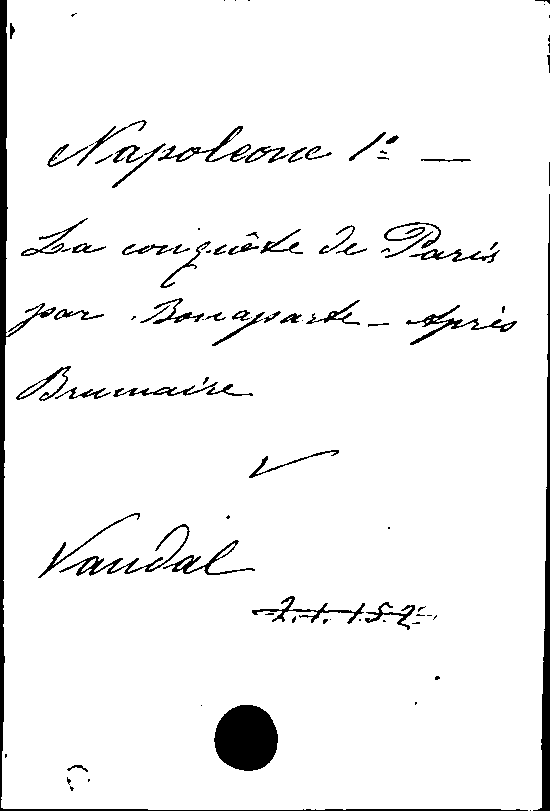 Napoleone 1º —
La conquête de Paris
par Bonaparte - Après
Brumaire
Vandal
2.1.152